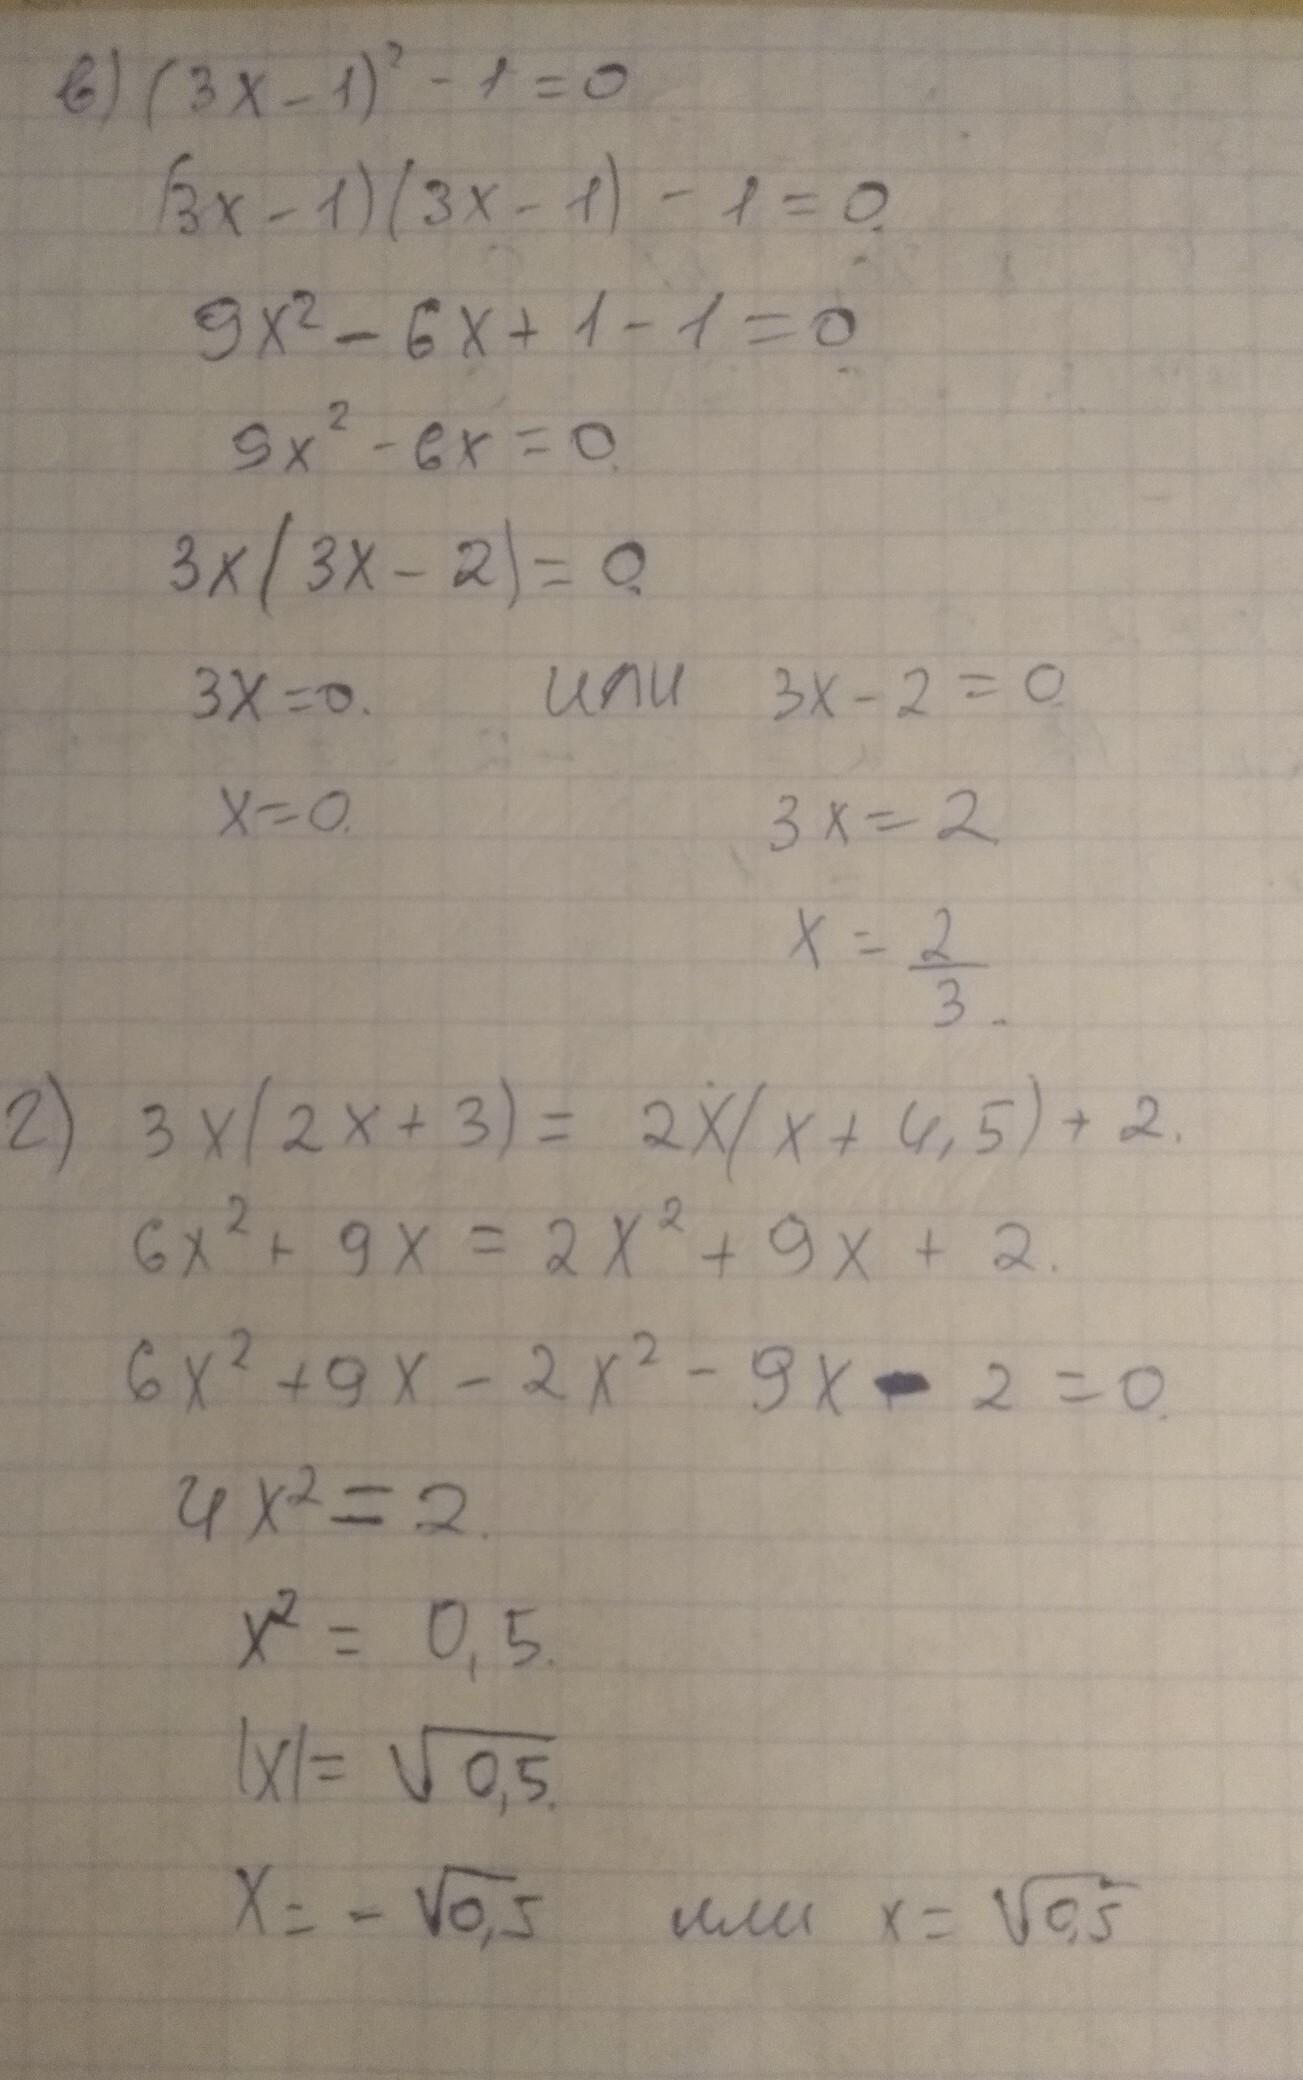 в) (3x - 1)² - 1 = 0
(3x - 1)(3x - 1) - 1 = 0.
9x² - 6x + 1 - 1 = 0.
9x² - 6x = 0.
3x(3x - 2) = 0.
3x = 0. или 3x - 2 = 0.
x = 0. 3x = 2.
x = 2/3.
г) 3x(2x + 3) = 2x(x + 4,5) + 2.
6x² + 9x = 2x² + 9x + 2.
6x² + 9x - 2x² - 9x - 2 = 0.
4x² = 2.
x² = 0,5.
|x| = √0,5.
x = - √0,5 или x = √0,5